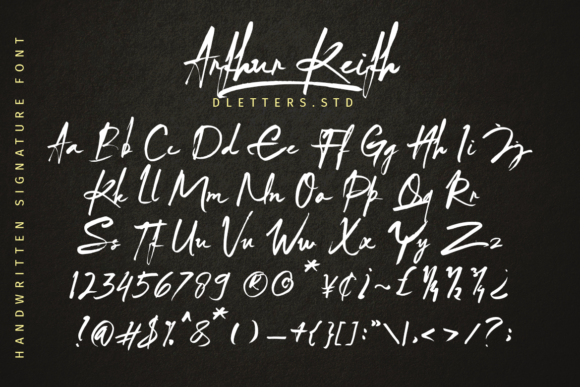 HANDWRITTEN SIGNATURE FONT
Arthur Keith
DLETTERS.STD
Aa Bb Cc Dd Ee Ff Gg Hh Ii Jj
Kk Ll Mm Nn Oo Pp Qq Rr
Ss Tt Uu Vv Ww Xx Yy Zz
123456789 ®© * ¥¢¡~£ ¼ ½ ¾ ¿
!@#$%^&*()_+{}[]:"\|,<>/?;